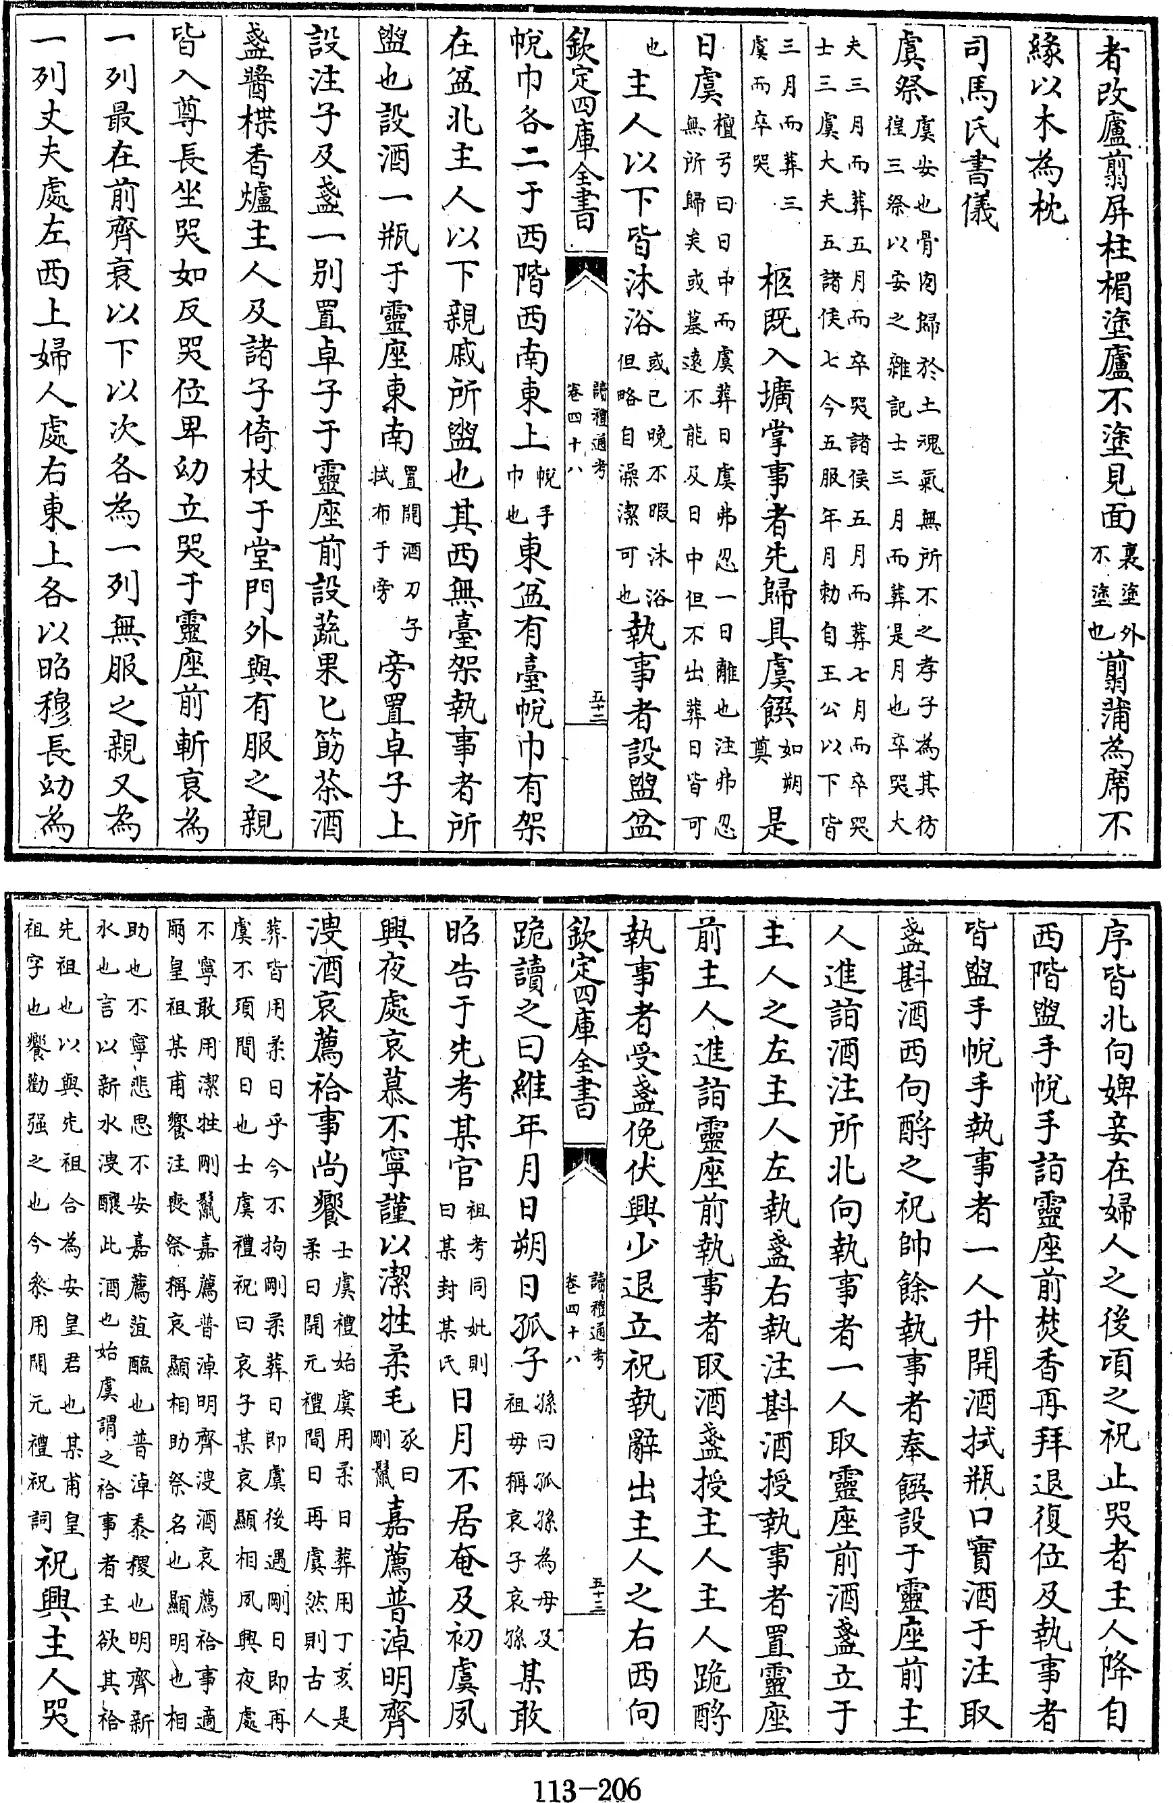 者改廬翦屏柱楣塗廬不塗見面裏塗外不塗也翦蒲為席不
緣以木為枕
司馬氏書儀
虞祭虞安也骨肉歸於土魂氣無所不之孝子為其彷徨三祭以安之雜記士三月而葬是月也卒哭大
夫三月而葬五月而卒哭諸侯五月而葬七月而卒哭士三虞大夫五諸侯七今五服年月勅自王公以下皆
三月而葬三虞而卒哭 柩既入壙掌事者先歸具虞饌如朔奠是
日虞檀弓曰日中而虞葬日虞弗忍一日離也注弗忍無所歸矣或墓遠不能及日中但不出葬日皆可
也 主人以下皆沐浴或已晚不暇沐浴但略自澡潔可也執事者設盥盆
欽定四庫全書 讀禮通考 卷四十八 五十二
帨巾各二于西階西南東上帨手巾也東盆有臺帨巾有架
在盆北主人以下親戚所盥也其西無臺架執事者所
盥也設酒一瓶于靈座東南置開酒刀子拭布于旁旁置卓子上
設注子及盞一別置卓子于靈座前設蔬果匕筯茶酒
盞醬楪香爐主人及諸子倚杖于堂門外與有服之親
皆入尊長坐哭如反哭位卑幼立哭于靈座前斬衰為
一列最在前齊衰以下以次各為一列無服之親又為
一列丈夫處左西上婦人處右東上各以昭穆長幼為
序皆北向婢妾在婦人之後頃之祝止哭者主人降自
西階盥手帨手詣靈座前焚香再拜退復位及執事者
皆盥手帨手執事者一人升開酒拭瓶口實酒于注取
盞斟酒西向酹之祝帥餘執事者奉饌設于靈座前主
人進詣酒注所北向執事者一人取靈座前酒盞立于
主人之左主人左執盞右執注斟酒授執事者置靈座
前主人進詣靈座前執事者取酒盞授主人主人跪酹
執事者受盞俛伏興少退立祝執辭出主人之右西向
欽定四庫全書 讀禮通考 卷四十八 五十三
跪讀之曰維年月日朔日孤子孫曰孤孫為母及祖母稱哀子哀孫某敢
昭告于先考某官祖考同妣則曰某封某氏日月不居奄及初虞夙
興夜處哀慕不寧謹以潔牲柔毛豕曰剛鬣嘉薦普淖明齊
溲酒哀薦祫事尚饗士虞禮始虞用柔日葬用丁亥是柔日開元禮間日再虞然則古人
葬皆用柔日乎今不拘剛柔葬日即虞後遇剛日即再虞不須間日也士虞禮祝曰哀子某哀顯相夙興夜處
不寧敢用潔牲剛鬣嘉薦普淖明齊溲酒哀薦祫事適爾皇祖某甫饗注喪祭稱哀顯相助祭名也顯明也相
助也不寧悲思不安嘉薦菹醢也普淖黍稷也明齊新水也言以新水溲釀此酒也始虞謂之祫事者主欲其祫
先祖也以與先祖合為安皇君也某甫皇祖字也饗勸强之也今參用開元禮祝詞祝興主人哭
113-206